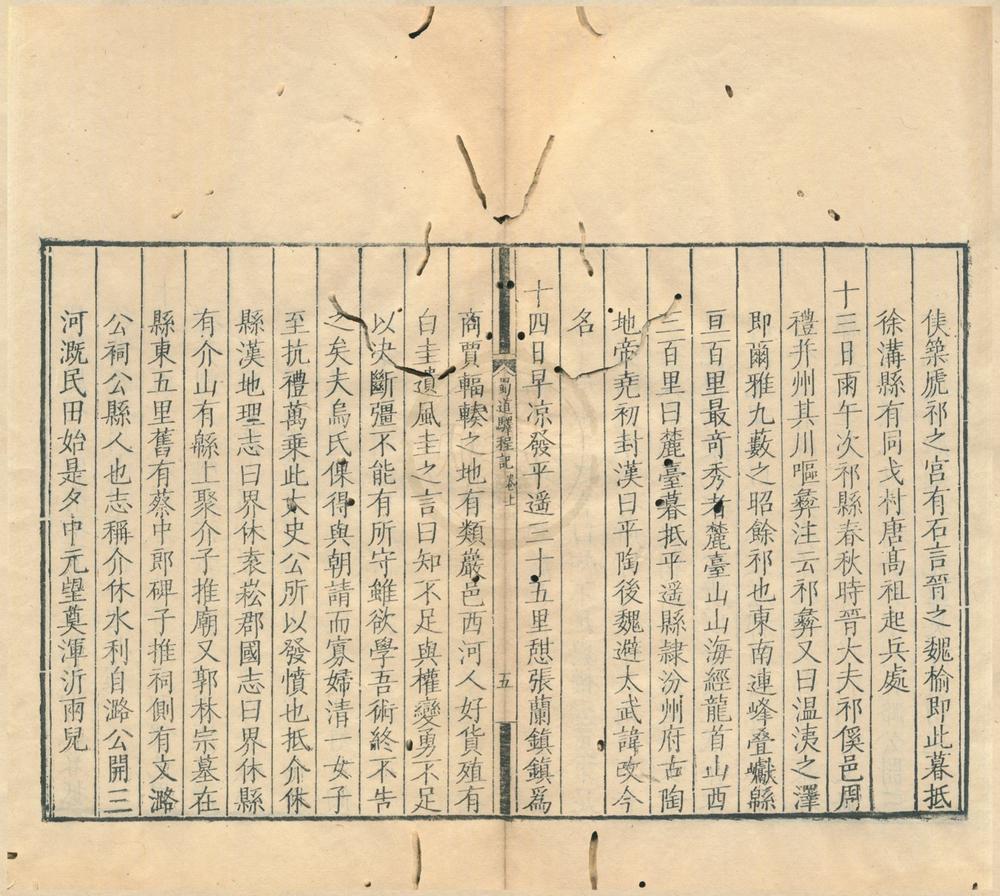 侯築虒祁之宮有石言晉之魏榆即此暮抵
徐溝縣有同戈村唐高祖起兵處
十三日雨午次祁縣春秋時晉大夫祁傒邑周
禮并州其川嘔彝注云祁彝又曰温洟之澤
即爾雅九藪之昭餘祁也東南連峰疊巘緜
亘百里最奇秀者麓臺山山海經龍首山西
三百里曰麓臺暮抵平遥縣隷汾州府古陶
地帝堯初封漢曰平陶後魏避太武諱改今
名
十四日早凉發平遥三十五里憇張蘭鎮鎮爲
蜀道驛程記 卷上 五
商賈輻輳之地有類巖邑西河人好貨殖有
白圭遺風圭之言曰知不足與權變勇不足
以决斷彊不能有所守雖欲學吾術終不吿
之矣夫烏氏倮得與朝請而寡婦清一女子
至抗禮萬乗此太史公所以發憤也抵介休
縣漢地理志曰界休袁崧郡國志曰界休縣
有介山有緜上聚介子推廟又郭林宗墓在
縣東五里舊有蔡中郎碑子推祠側有文潞
公祠公縣人也志稱介休水利自潞公開三
河漑民田始是夕中元望奠渾沂兩兒